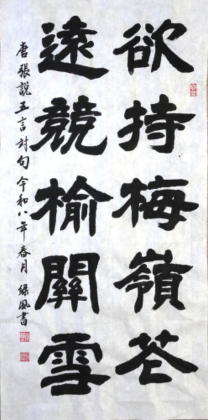 欲持梅嶺花
遠競榆關雪
唐張說五言對句 令和八年春月 緑風書